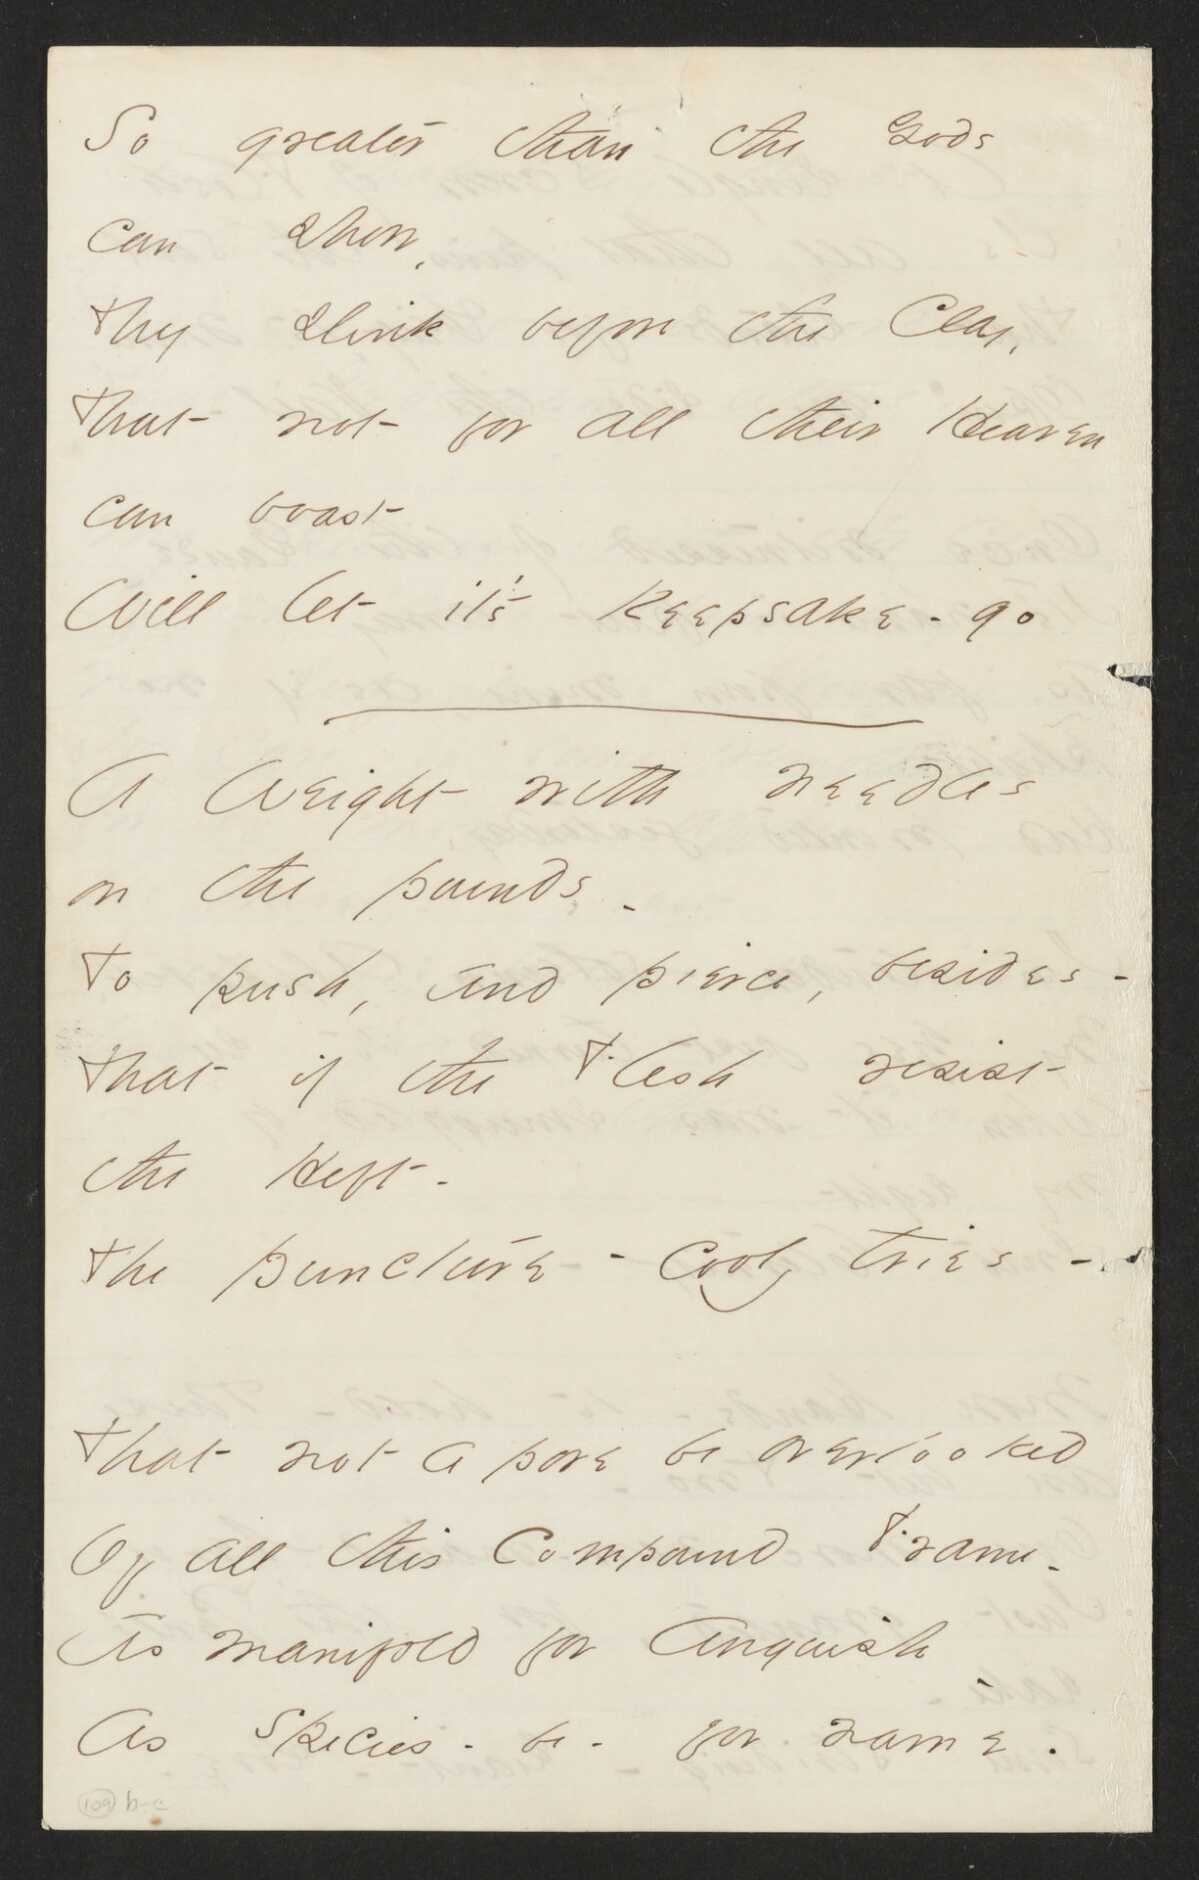 So greater than the Gods
can show,
They slink before the Clay,
That not for all their Heaven
can boast
Will let it's Keepsake - go
A Weight with needles
on the pounds -
To push, and pierce, besides -
That if the Flesh resist
the Heft -
The puncture - Coolly tries -
That not a pore be overlooked
Of all this Compound Frame -
As manifold for Anguish
As Species - be - for name .
109 b-c